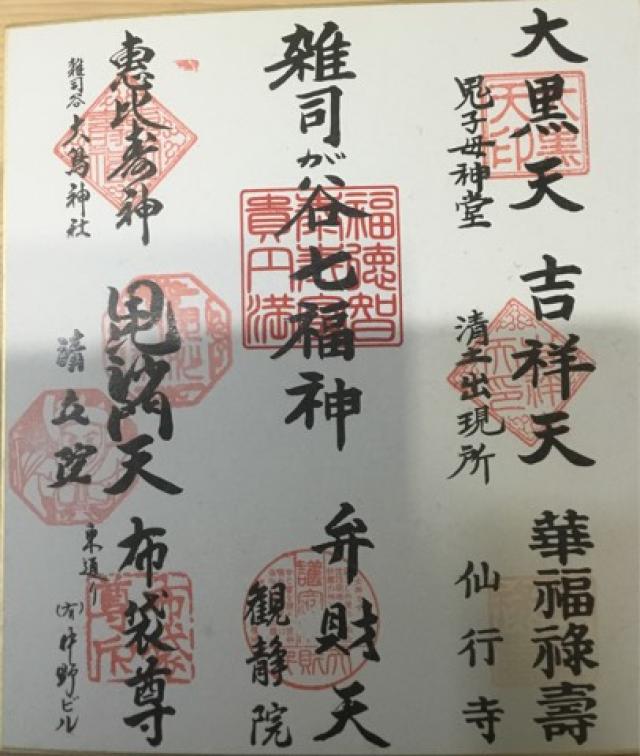 大黒天
鬼子母神堂
吉祥天
清土出現所
華福祿壽
仙行寺
雑司が谷七福神
福徳智
貴円満
弁財天
観静院
惠比寿神
雑司谷 大鳥神社
毘沙門天
清立院
布袋尊
東通り
(有)中野ビル